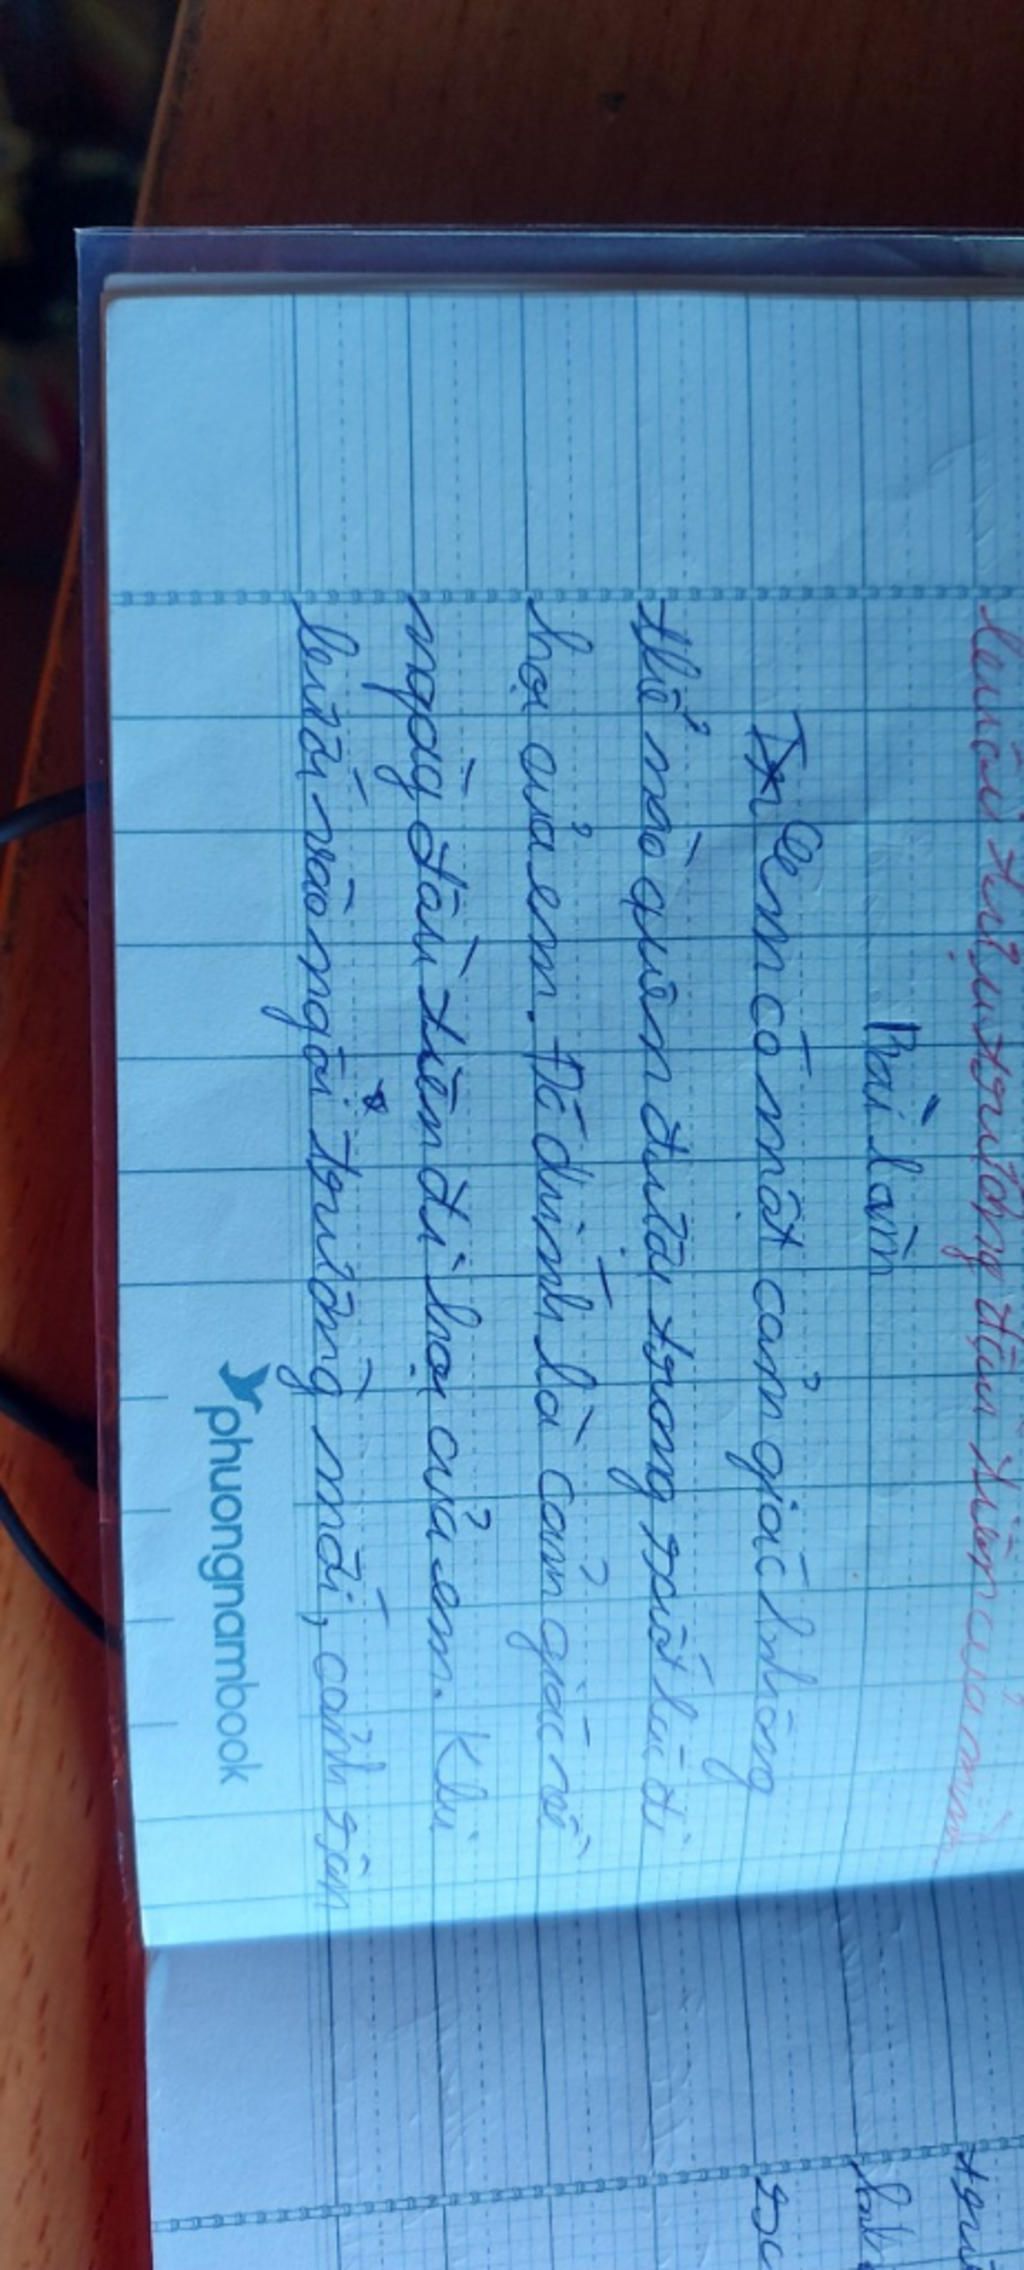 buổi tựu trường đầu tiên của mình
Bài làm
Em có một cảm giác không
thể nào quên được trong suốt lúc đi
học của em. Đó chính là cảm giác về
ngày đầu tiên đi học của em. Khi
bước vào ngôi trường mới, cảnh sân
phuongnambook